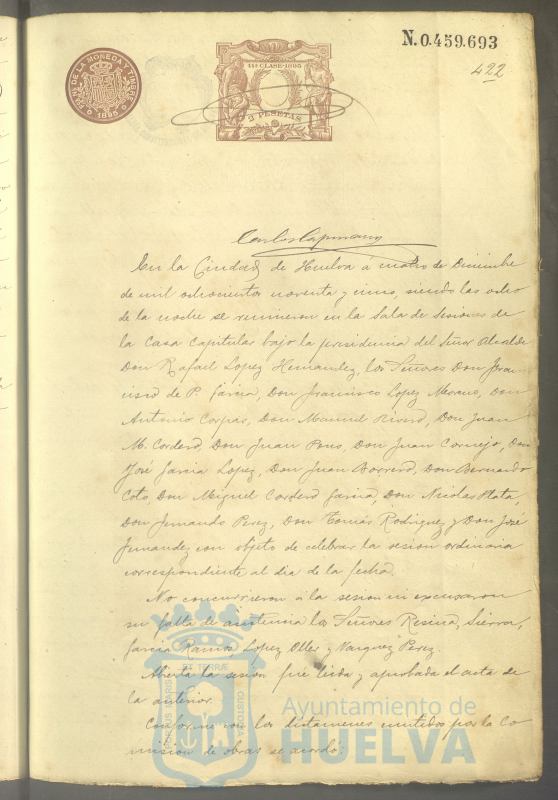 N.0.459.693
422
11ª CLASE-1895
2 PESETAS
1895
En la Ciudad de Huelva á cuatro de Diciembre
de mil ochocientos noventa y cinco, siendo las ocho
de la noche se reunieron en la Sala de Sesiones de
la Casa Capitular bajo la presidencia del Señor Alcalde
Don Rafael Lopez Hernandez, los Señores Don Fran-
cisco de P. Garcia, Don Francisco Lopez Moreno, Don
Antonio Corpas, Don Manuel Rivero, Don Juan
M. Cordero, Don Juan Pons, Don Juan Cornejo, Don
José Garcia Lopez, Don Juan Borrero, Don Bernardo
Coto, Don Miguel Cordero Garcia, Don Nicolas Mata
Don Fernando Perez, Don Tomás Rodriguez y Don José
Fernandez con objeto de celebrar la sesion ordinaria
correspondiente al dia de la fecha.
No concurrieron á la sesion ni excusaron
su falta de asistencia los Señores Resina, Sierra,
Garcia Ramos, Lopez Oller y Vazquez Perez.
Abierta la sesion fue leida y aprobada el acta de
la anterior.
Conforme con los dictamenes emitidos por la Co
mision de obras se acordó:
Ayuntamiento de
HUELVA